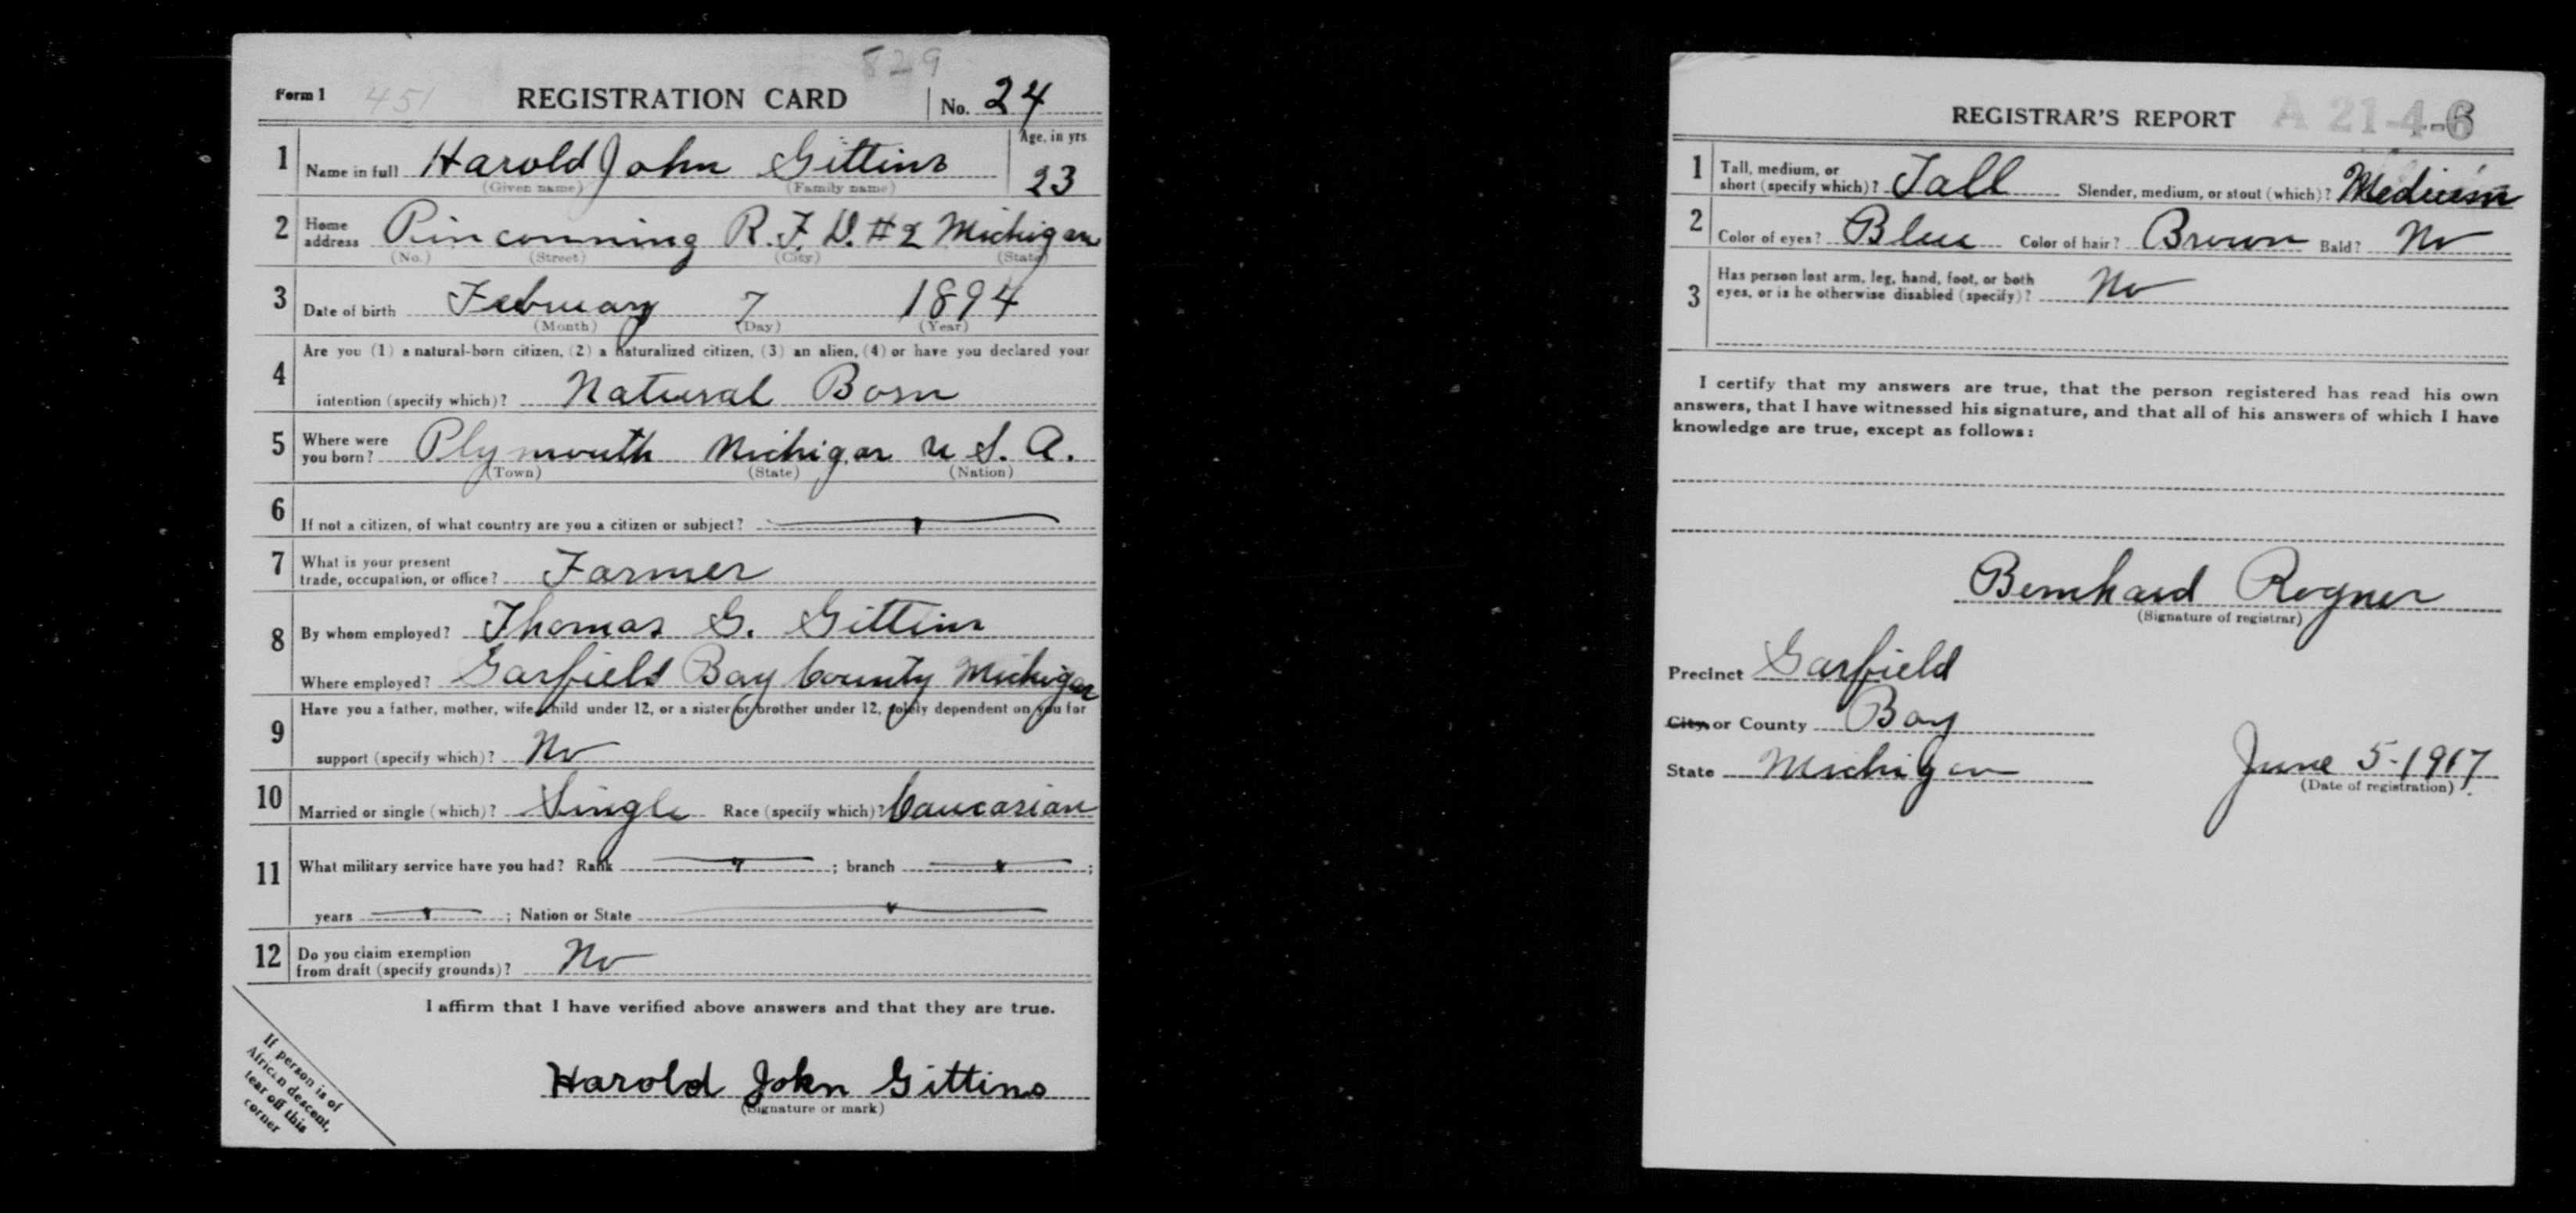 829
Form 1 451 REGISTRATION CARD No. 24
1 Name in full Harold John Gittins Age, in yrs 23
(Given name) (Family name)
2 Home address Pinconning R.F.D. #2 Michigan
(No.) (Street) (City) (State)
3 Date of birth February 7 1894
(Month) (Day) (Year)
4 Are you (1) a natural-born citizen, (2) a naturalized citizen, (3) an alien, (4) or have you declared your
intention (specify which)? Natural Born
5 Where were you born? Plymouth Michigan U.S.A.
(Town) (State) (Nation)
6 If not a citizen, of what country are you a citizen or subject?
7 What is your present
trade, occupation, or office? Farmer
8 By whom employed? Thomas G. Gittins
Where employed? Garfield Bay County Michigan
9 Have you a father, mother, wife, child under 12, or a sister or brother under 12, solely dependent on you for
support (specify which)? No
10 Married or single (which)? Single Race (specify which)? Caucasian
11 What military service have you had? Rank ; branch ;
years ; Nation or State
12 Do you claim exemption
from draft (specify grounds)? No
I affirm that I have verified above answers and that they are true.
Harold John Gittins
(Signature or mark)
If person is of
African descent,
tear off this
corner
REGISTRAR'S REPORT A 21-4-6
1 Tall, medium, or
short (specify which)? Tall Slender, medium, or stout (which)? Medium
2 Color of eyes? Blue Color of hair? Brown Bald? No
3 Has person lost arm, leg, hand, foot, or both
eyes, or is he otherwise disabled (specify)? No
I certify that my answers are true, that the person registered has read his own
answers, that I have witnessed his signature, and that all of his answers of which I have
knowledge are true, except as follows:
Bernhard Rogner
(Signature of registrar)
Precinct Garfield
City or County Bay
State Michigan June 5-1917
(Date of registration)